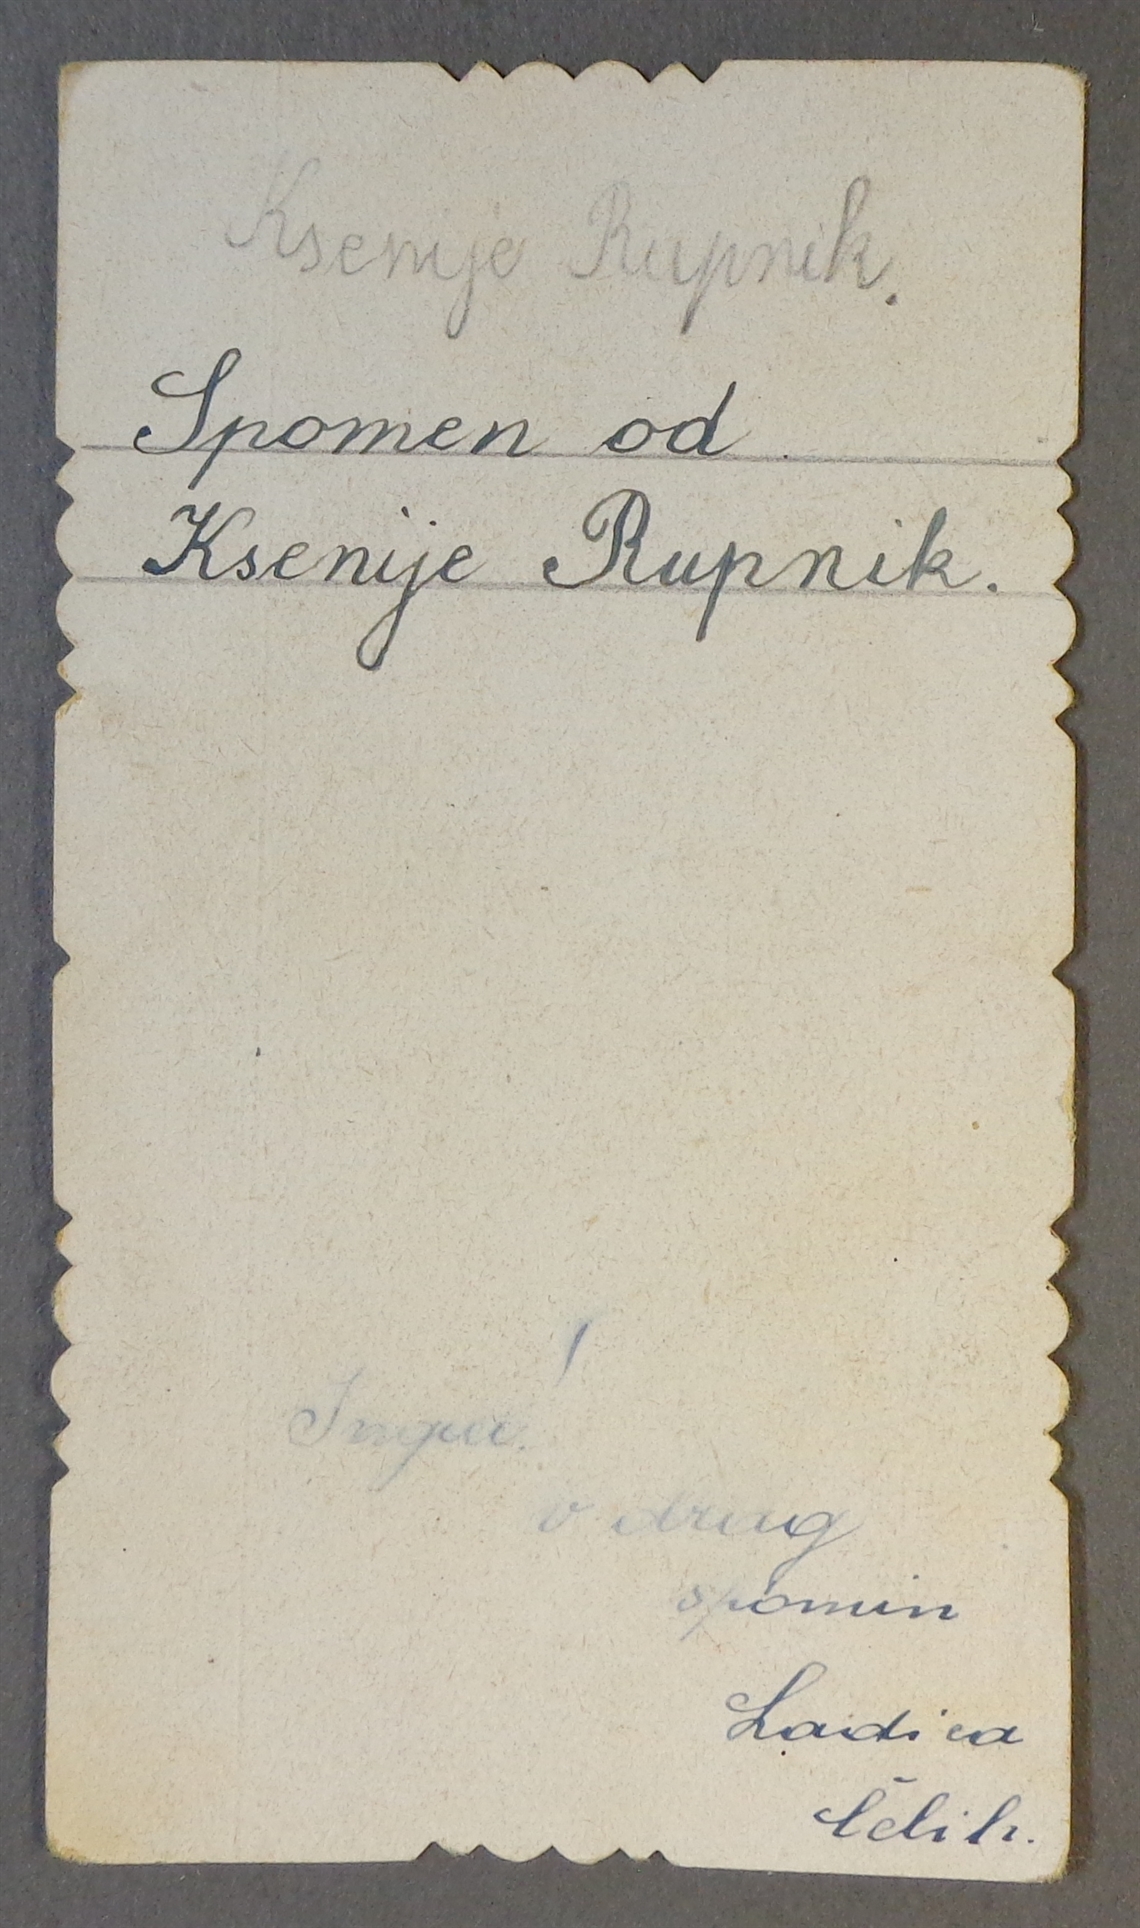 Ksenije Rupnik.
Spomen od
Ksenije Rupnik.
v drag
spomin
Ladica